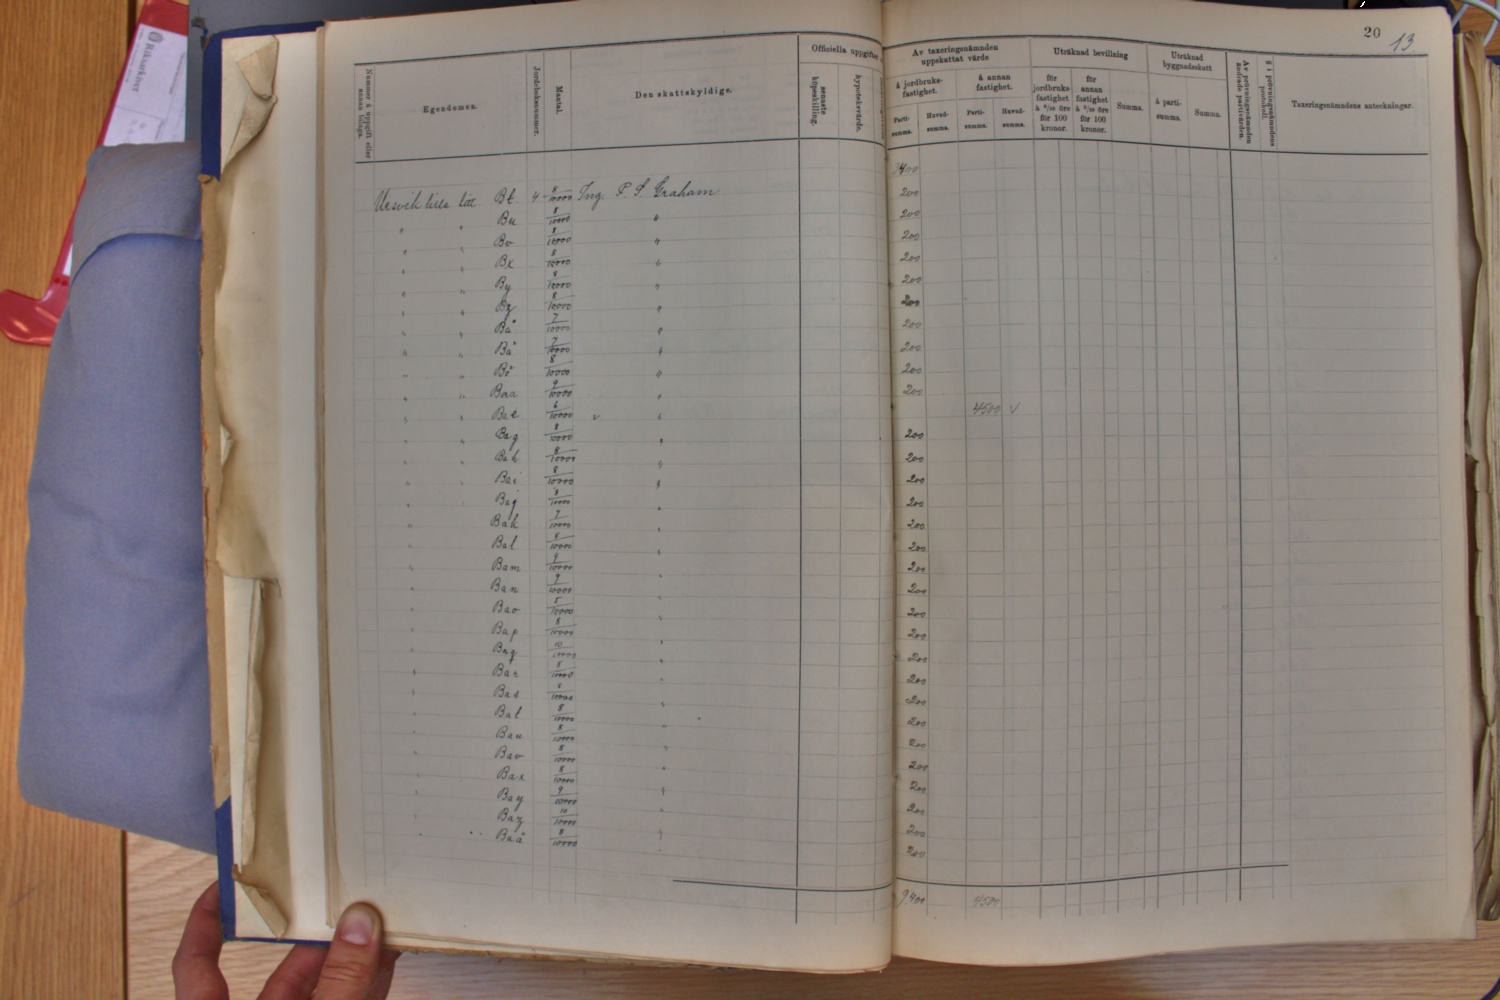 Riksarkivet
20
13
Nummer å uppgift eller annan bilaga.
Egendomen.
Jordeboksnummer.
Mantal.
Den skattskyldige.
Officiella uppgifter
senaste köpeskilling.
hypoteksvärde.
Av taxeringsnämnden uppskattat värde
å jordbruksfastighet.
å annan fastighet.
Parti-summa.
Huvud-summa.
Parti-summa.
Huvud-summa.
Uträknad bevillning
för jordbruksfastighet
för 100 kronor.
för annan fastighet
för 100 kronor.
Summa.
Uträknad byggnadsskatt
å parti-summa.
Summa.
Av prövningsnämnden ändrade partivärden.
§ i prövningsnämndens protokoll.
Taxeringsnämndens anteckningar.
Ursvik lilla lott Bt 4 8/10000 Ing. P. S. Graham 200
" " Bu 8/10000 " 200
" " Bv 8/10000 " 200
" " Bx 8/10000 " 200
" " By 8/10000 " 200
" " Bz 8/10000 " 200
" " Bå 7/10000 " 200
" " Bä 7/10000 " 200
" " Bö 8/10000 " 200
" " Baa 9/10000 " 200
" " Bae 6/10000 " 4500 √
" " Bag 8/10000 " 200
" " Bah 8/10000 " 200
" " Bai 8/10000 " 200
" Baj 8/10000 " 200
" Bak 7/10000 " 200
" Bal 8/10000 " 200
" Bam 9/10000 " 200
" Ban 9/10000 " 200
" Bao 5/10000 " 200
" Bap 8/10000 " 200
" Baq 10/10000 " 200
" Bar 8/10000 " 200
" Bas 8/10000 200
" Bat 8/10000 " 200
" Bau 8/10000 " 200
" Bav 8/10000 " 200
" Bax 8/10000 " 200
" Bay 9/10000 " 200
" Baz 10/10000 " 200
" " Baå 8/10000 " 200
9400 4500